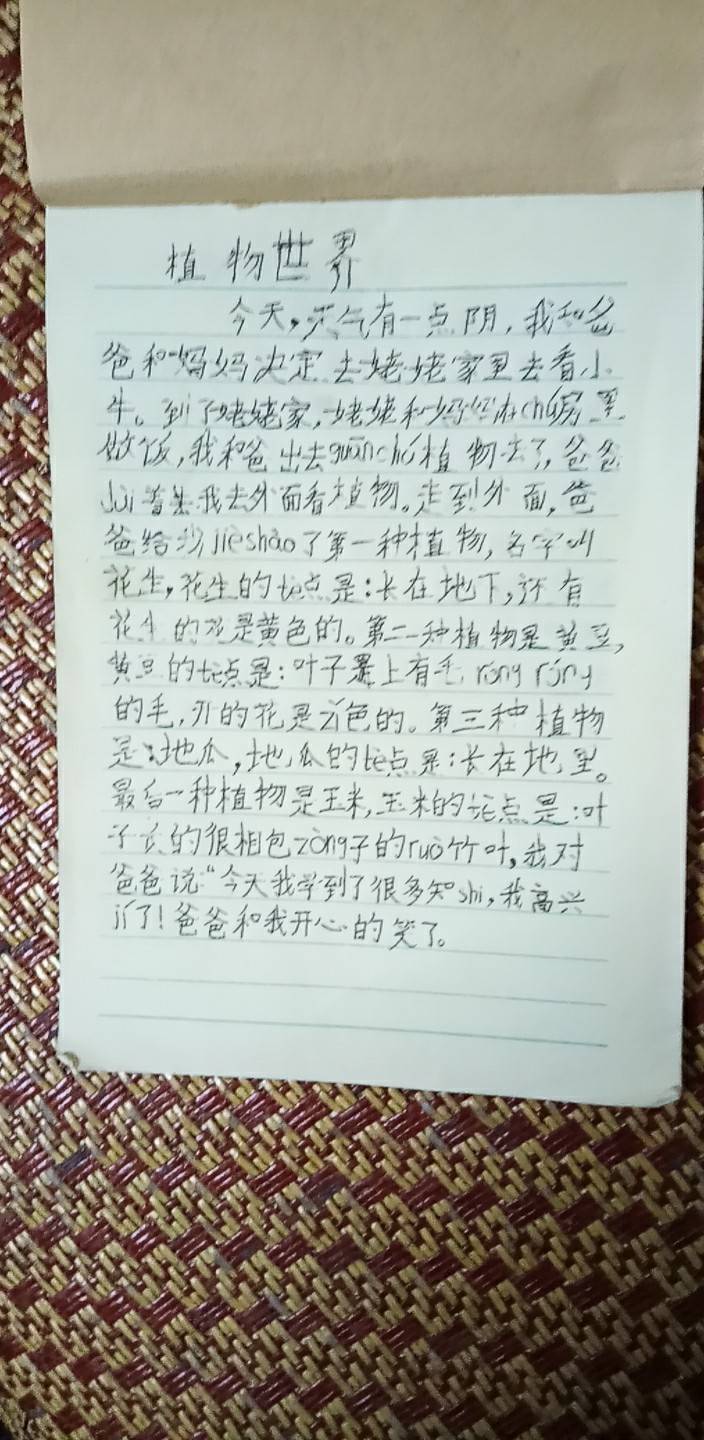 植物世界
今天,天气有一点阴,我和爸
爸和妈妈决定去姥姥家里去看小
牛。到了姥姥家,姥姥和妈妈在chú房里
做饭,我和爸出去guānchá植物去了,爸爸
着我去外面看植物。走到外面,爸
爸给我jièshào了第一种植物,名字叫
花生,花生的tè点是:长在地下,还有
花生的花是黄色的。第二种植物是黄豆,
黄豆的tè点是:叶子上有毛róng róng
的毛,它的花是色的。第三种植物
是:地瓜,地瓜的tè点是:长在地里。
最后一种植物是玉米,玉米的tè点是:叶
子长的很相包zòng子的ruò竹叶,我对
爸爸说“今天我学到了很多知shi,我高兴
jí了!爸爸和我开心的笑了。